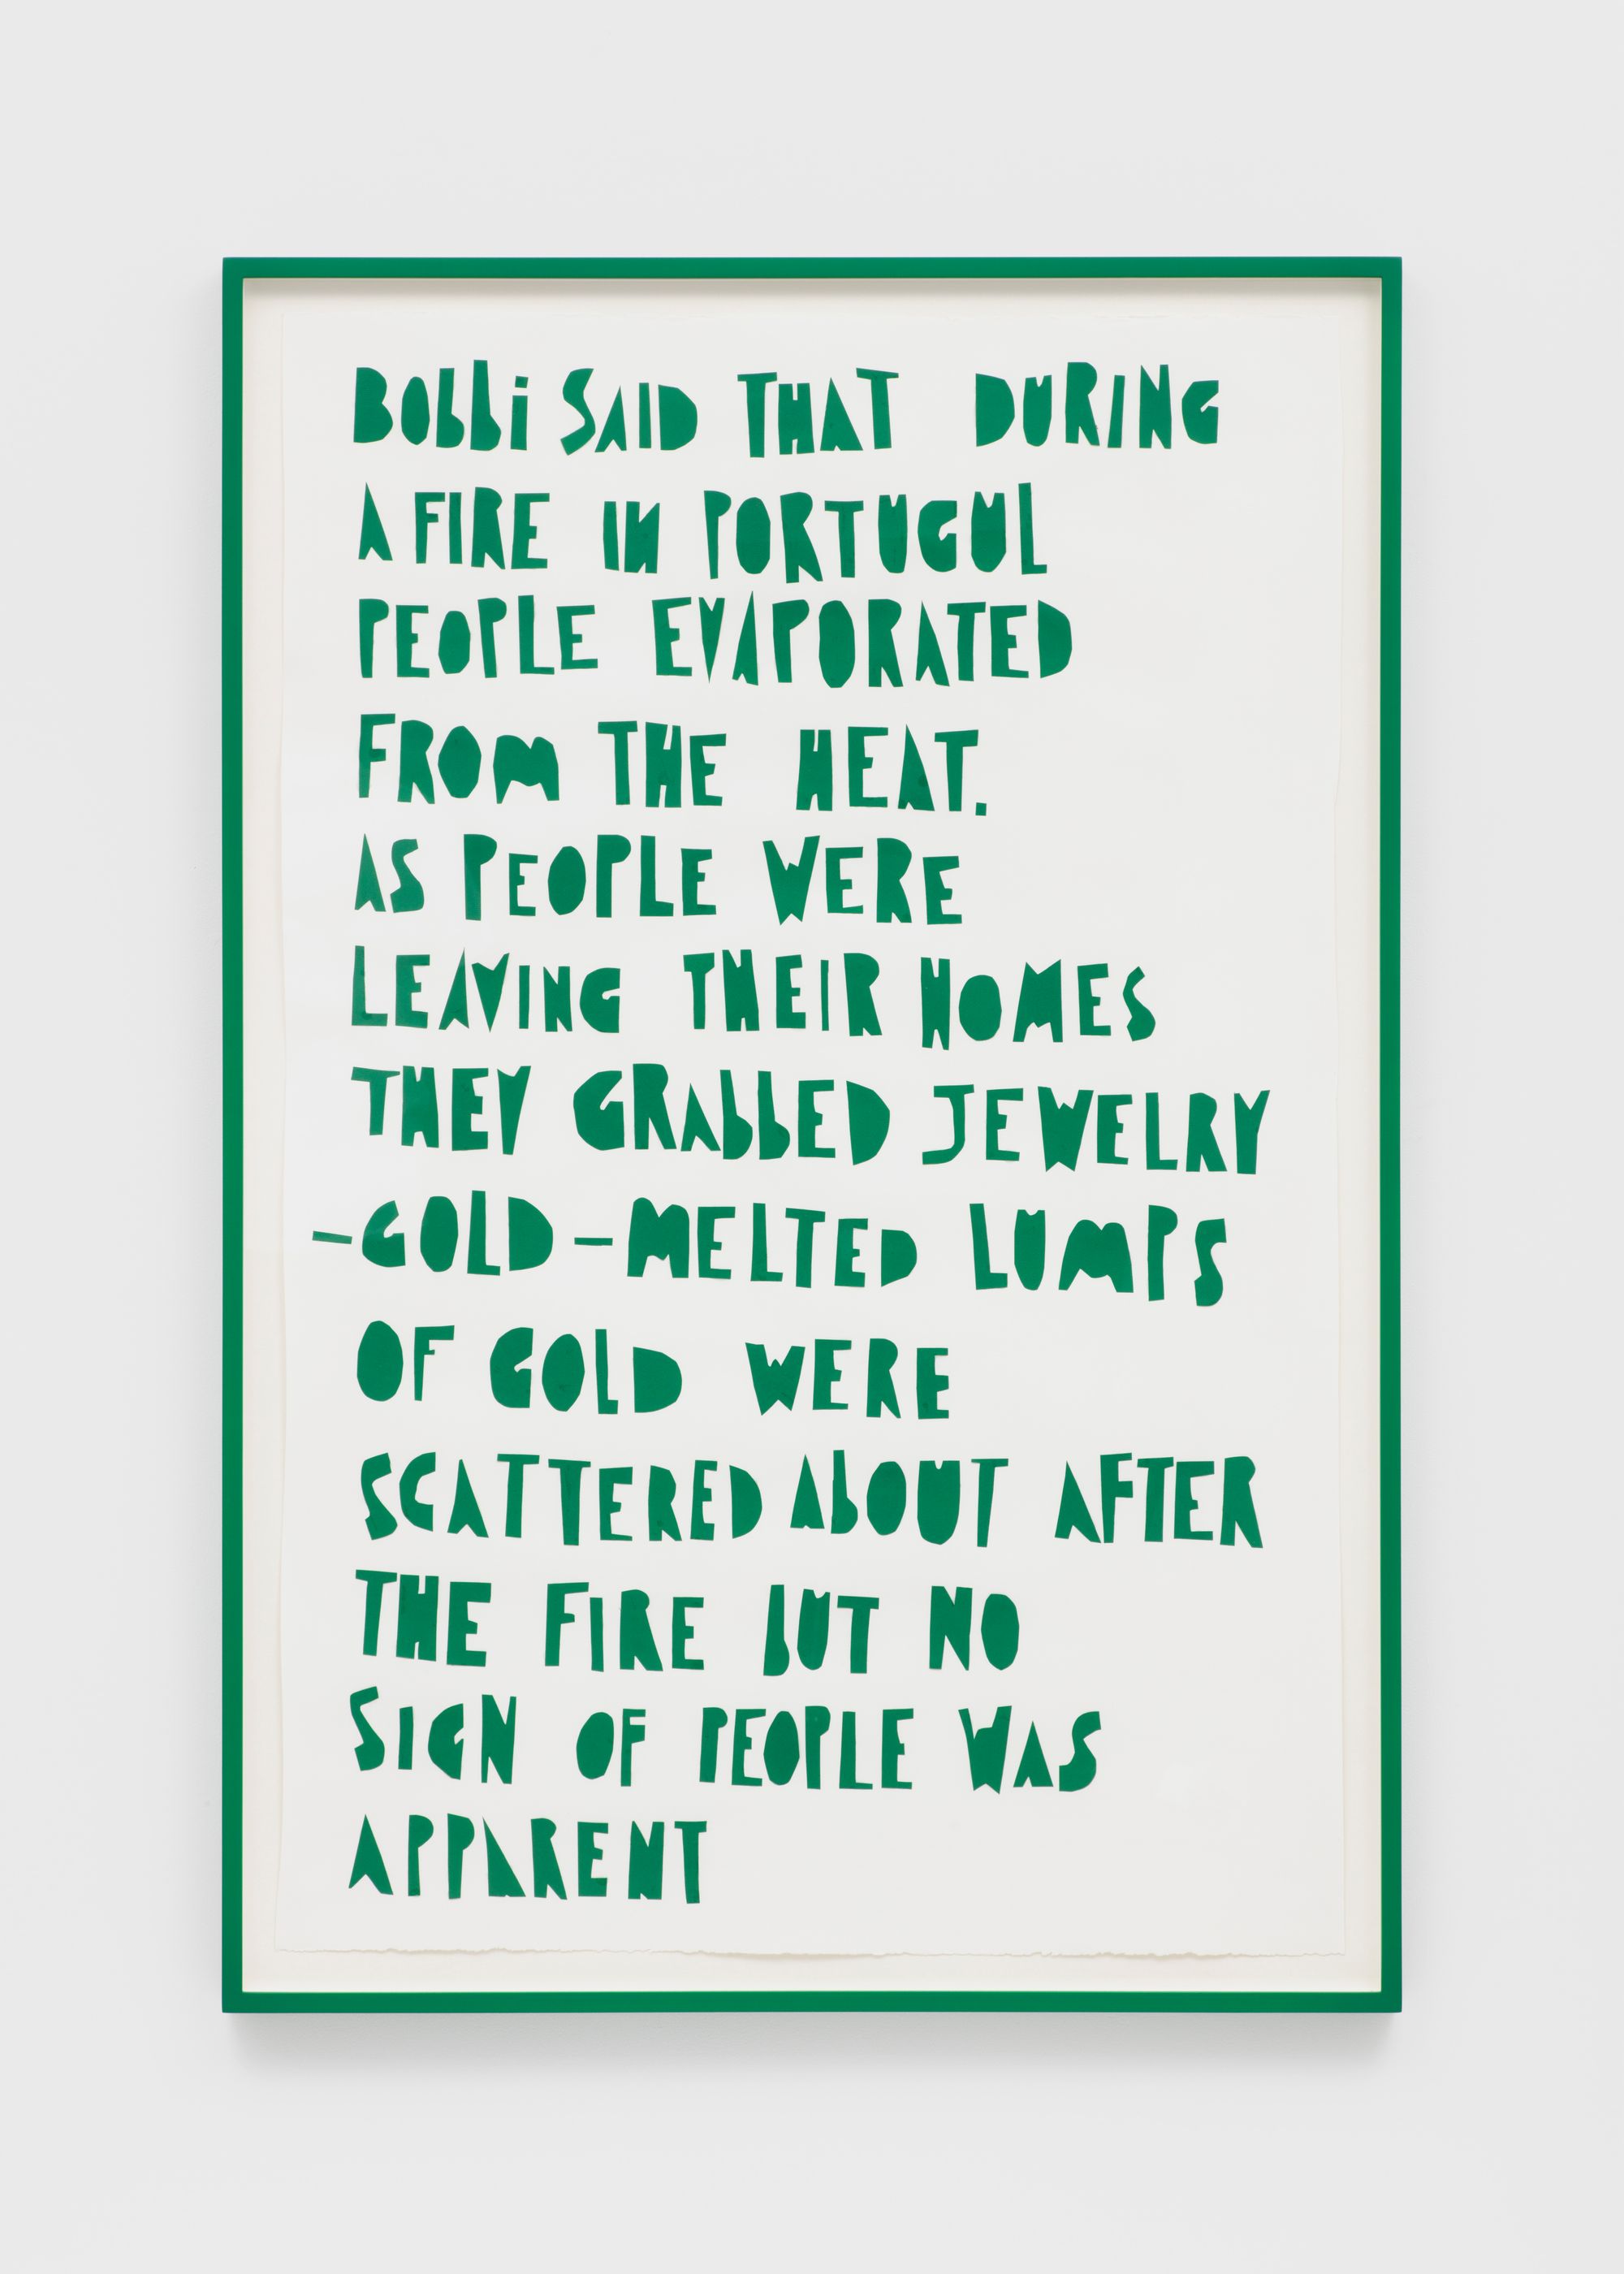 Bobbi SAID THAT DURING
A FIRE IN PORTUGUL
PEOPLE EVAPORATED
FROM THE HEAT.
AS PEOPLE WERE
LEAVING THEIR HOMES
THEY GRAbbED JEWELRY
—GOLD—MELTED LUMPS
OF GOLD WERE
SCATTERED AbOUT AFTER
THE FIRE bUT NO
SIGN OF PEOPLE WAS
APPARENT